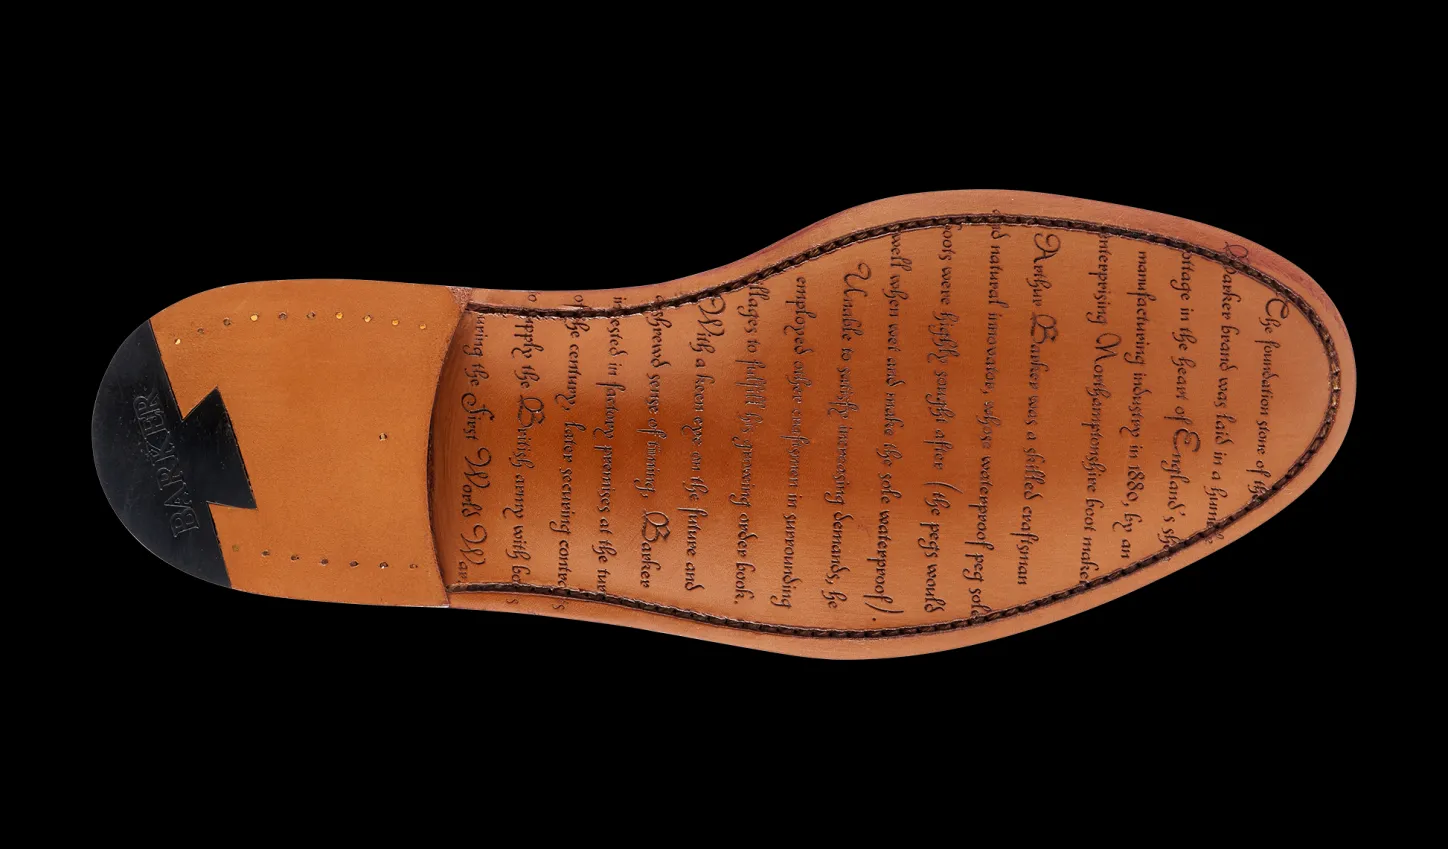 The foundation stone of the
Barker brand was laid in a humble
ottage in the heart of England's sh
manufacturing industry in 1880, by an
enterprising Northamptonshire boot maker
Arthur Barker was a skilled craftsman
and natural innovator, whose waterproof peg sole
boots were highly sought after (the pegs would
swell when wet and make the sole waterproof).
Unable to satisfy increasing demands, he
employed other craftsmen in surrounding
illages to fulfill his growing order book.
With a keen eye on the future and
shrewd sense of timing, Barker
invested in factory premises at the turn
of the century, later securing contrcts
to supply the British army with boots
uring the First World War
BARKER